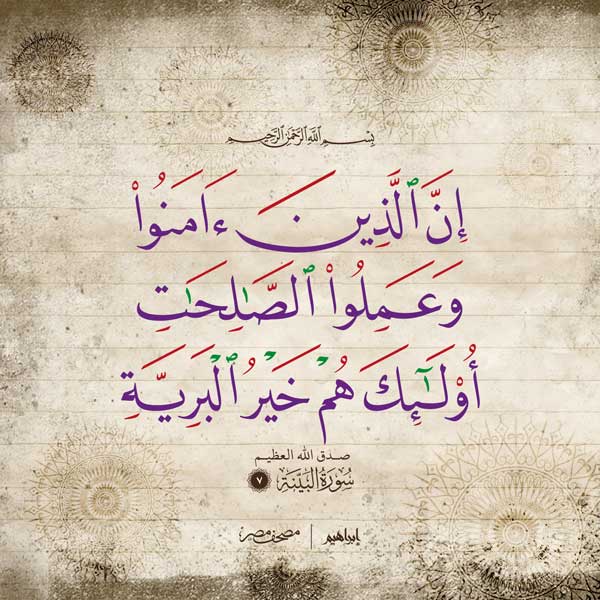 بِسْمِ ٱللَّهِ ٱلرَّحْمَٰنِ ٱلرَّحِيمِ
إِنَّ ٱلَّذِينَ ءَامَنُوا۟
وَعَمِلُوا۟ ٱلصَّٰلِحَٰتِ
أُو۟لَٰٓئِكَ هُمْ خَيْرُ ٱلْبَرِيَّةِ
صدق الله العظيم
سُورَةُ البَيِّنَة ٧
إبراهيم | مصحف مصر